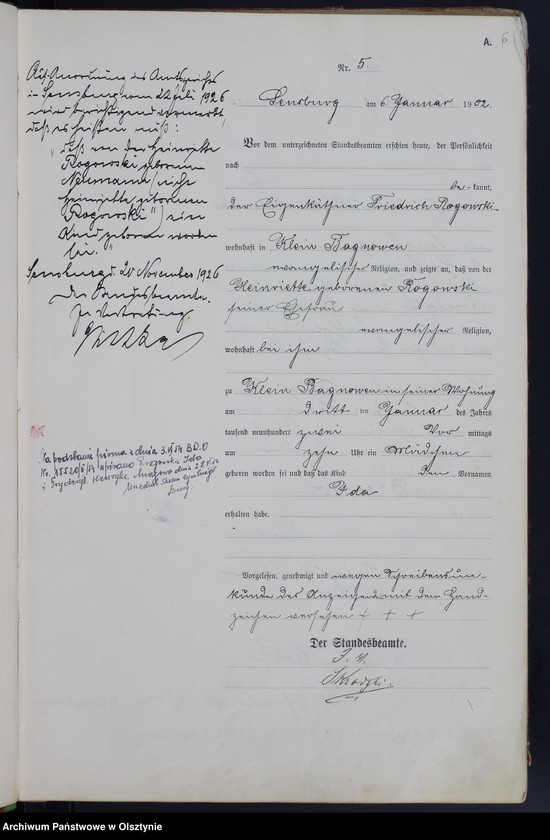 A.
6
Nr. 5.
Sensburg am 6 Januar 1902.
Vor dem unterzeichneten Standesbeamten erschien heute, der Persönlichkeit
nach
be-kannt,
der Eigenkäthner Friedrich Rogowski
wohnhaft in Klein Bagnowen
evangelischer Religion, und zeigte an, daß von der
Heinriette geborenen Rogowski
seiner Ehefrau
evangelischer Religion,
wohnhaft bei ihm
zu Klein Bagnowen in seiner Wohnung
am dritten Januar des Jahres
tausend neunhundert zwei Vor mittags
um zehn Uhr ein Mädchen
geboren worden sei und daß das Kind den Vornamen
Ida
erhalten habe.
Vorgelesen, genehmigt und wegen Schreibensun-
kunde des Anzeigenden mit dem Hand-
zeichen versehen + + +
Der Standesbeamte.
I. V.
Auf Anordnung des Amtsgerichts
in Sensburg vom 22 Juli 1926
wird berichtigend vermerkt,
daß es heißen muß:
"daß von der Heinriette
Rogowski geborenen
Neumann (nicht
Heinriette geborenen
Rogowski") ein
Kind geboren worden
sei."
Sensburg d. 20 November 1926
Der Standesbeamte.
In Vertretung
Na podstawie pisma z dnia
Archiwum Państwowe w Olsztynie